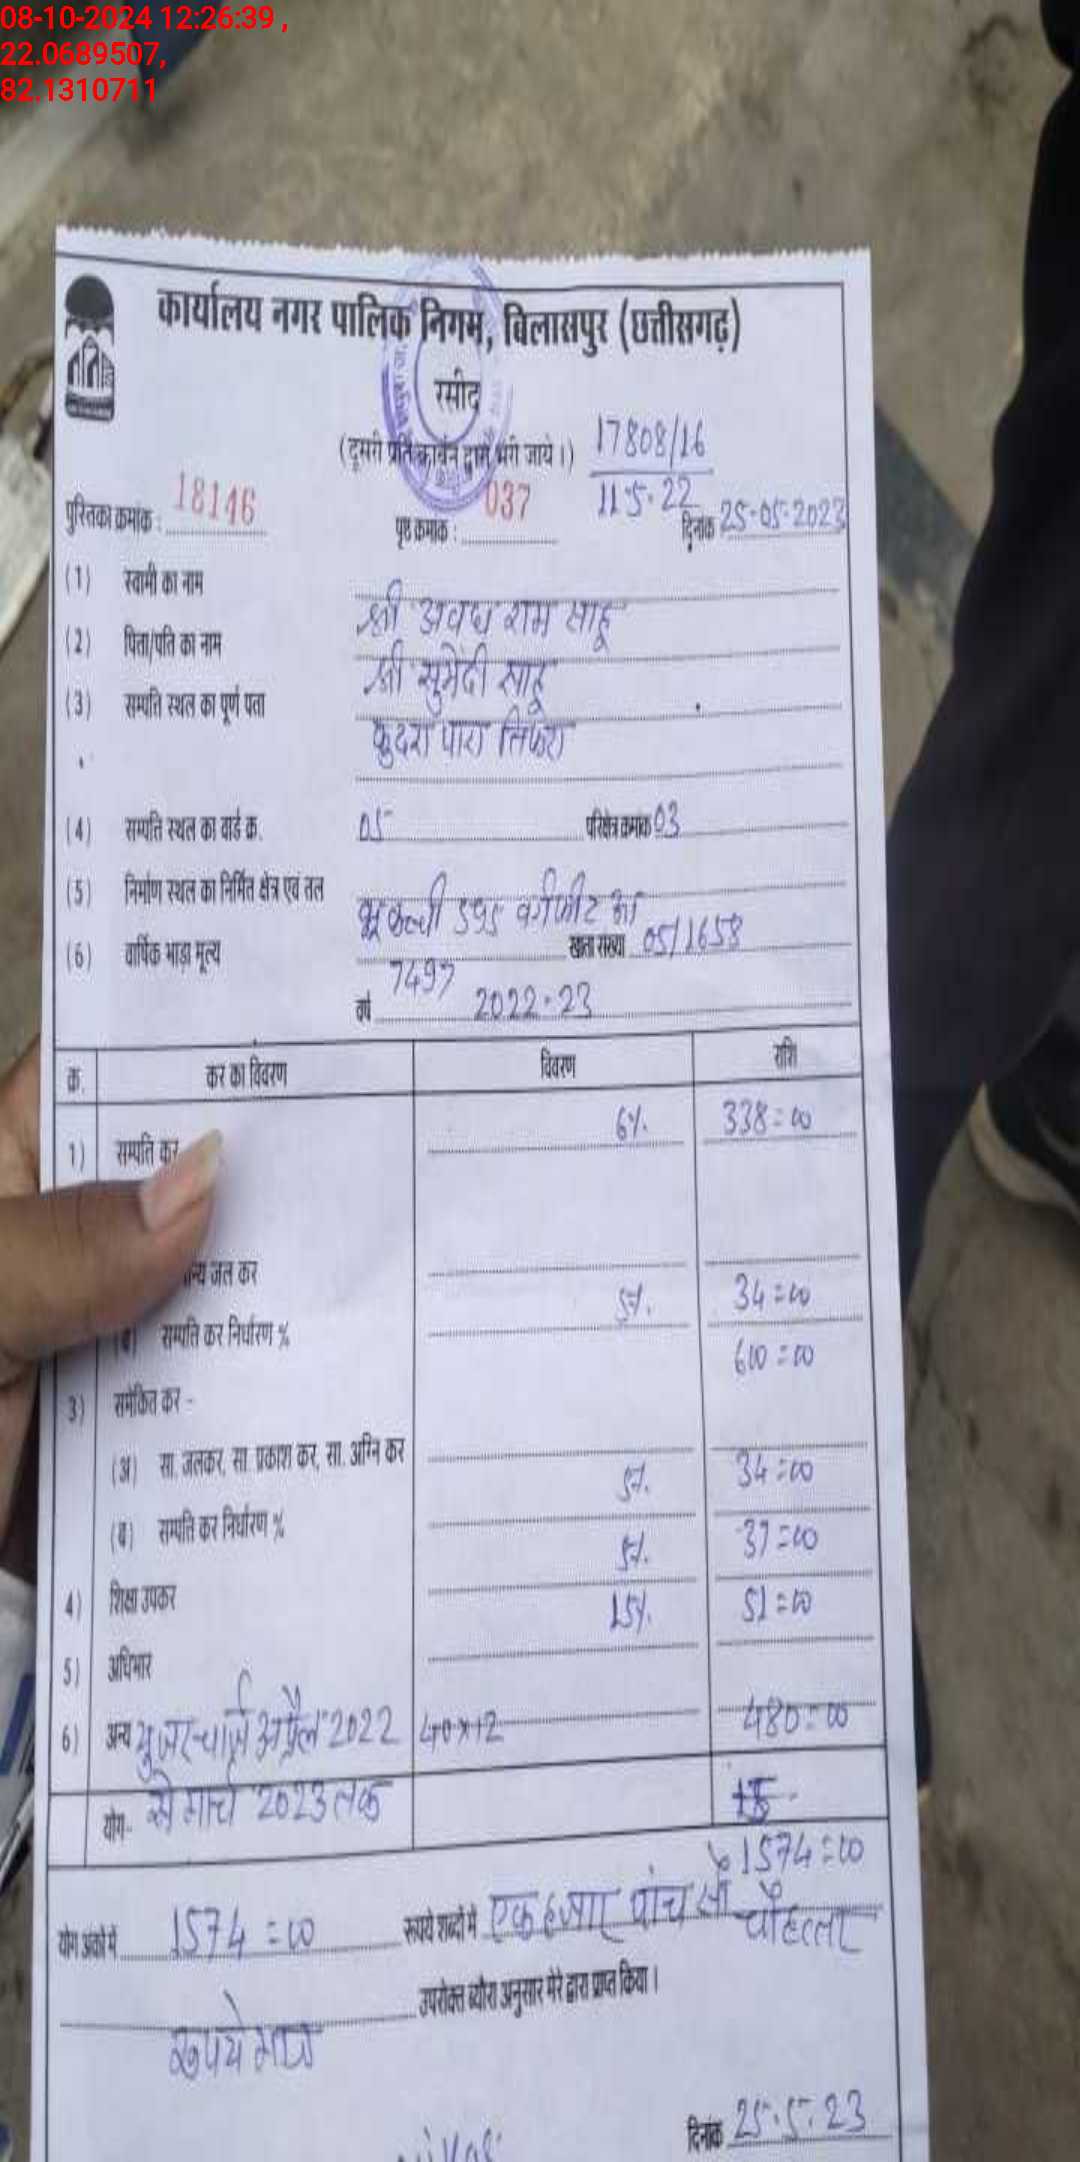 08-10-2024 12:26:39 ,
22.0689507,
82.1310711
कार्यालय नगर पालिक निगम, बिलासपुर (छत्तीसगढ़)
रसीद
(दूसरी प्रति कार्बन द्वारा भरी जाये।) 17808/16
11.5.22
पुस्तिका क्रमांक : 18146 पृष्ठ क्रमांक : 037 दिनांक 25-05-2023
(1) स्वामी का नाम श्री अवध राम साहू
(2) पिता/पति का नाम श्री सुमेदी साहू
(3) सम्पति स्थल का पूर्ण पता कुदरा पारा तिफरा
(4) सम्पति स्थल का वार्ड क्र. 05 परिक्षेत्र क्रमांक 03
(5) निर्माण स्थल का निर्मित क्षेत्र एवं तल भू कच्ची 595 वर्गफीट
(6) वार्षिक भाड़ा मूल्य 7497 खाता संख्या 05/1658
वर्ष 2022-23
क्र. कर का विवरण विवरण राशि
1) सम्पति कर 6%. 338=00
जल कर
(ब) सम्पति कर निर्धारण % 5%. 34=00
3) समेकित कर - 600=00
(अ) सा. जलकर, सा. प्रकाश कर, सा. अग्नि कर
(ब) सम्पति कर निर्धारण % 5%. 34=00
4) शिक्षा उपकर 5%. 37=00
5) अधिभार 15%. 51=00
6) अन्य यूजर-चार्ज अप्रैल 2022 40x12 480=00
योग- से मार्च 2023 तक
1574=00
योग अंको में 1574=00 रूपये शब्दों में एक हजार पांच सौ चौहत्तर
रूपये मात्र उपरोक्त ब्यौरा अनुसार मेरे द्वारा प्राप्त किया।
दिनांक 25.5.23